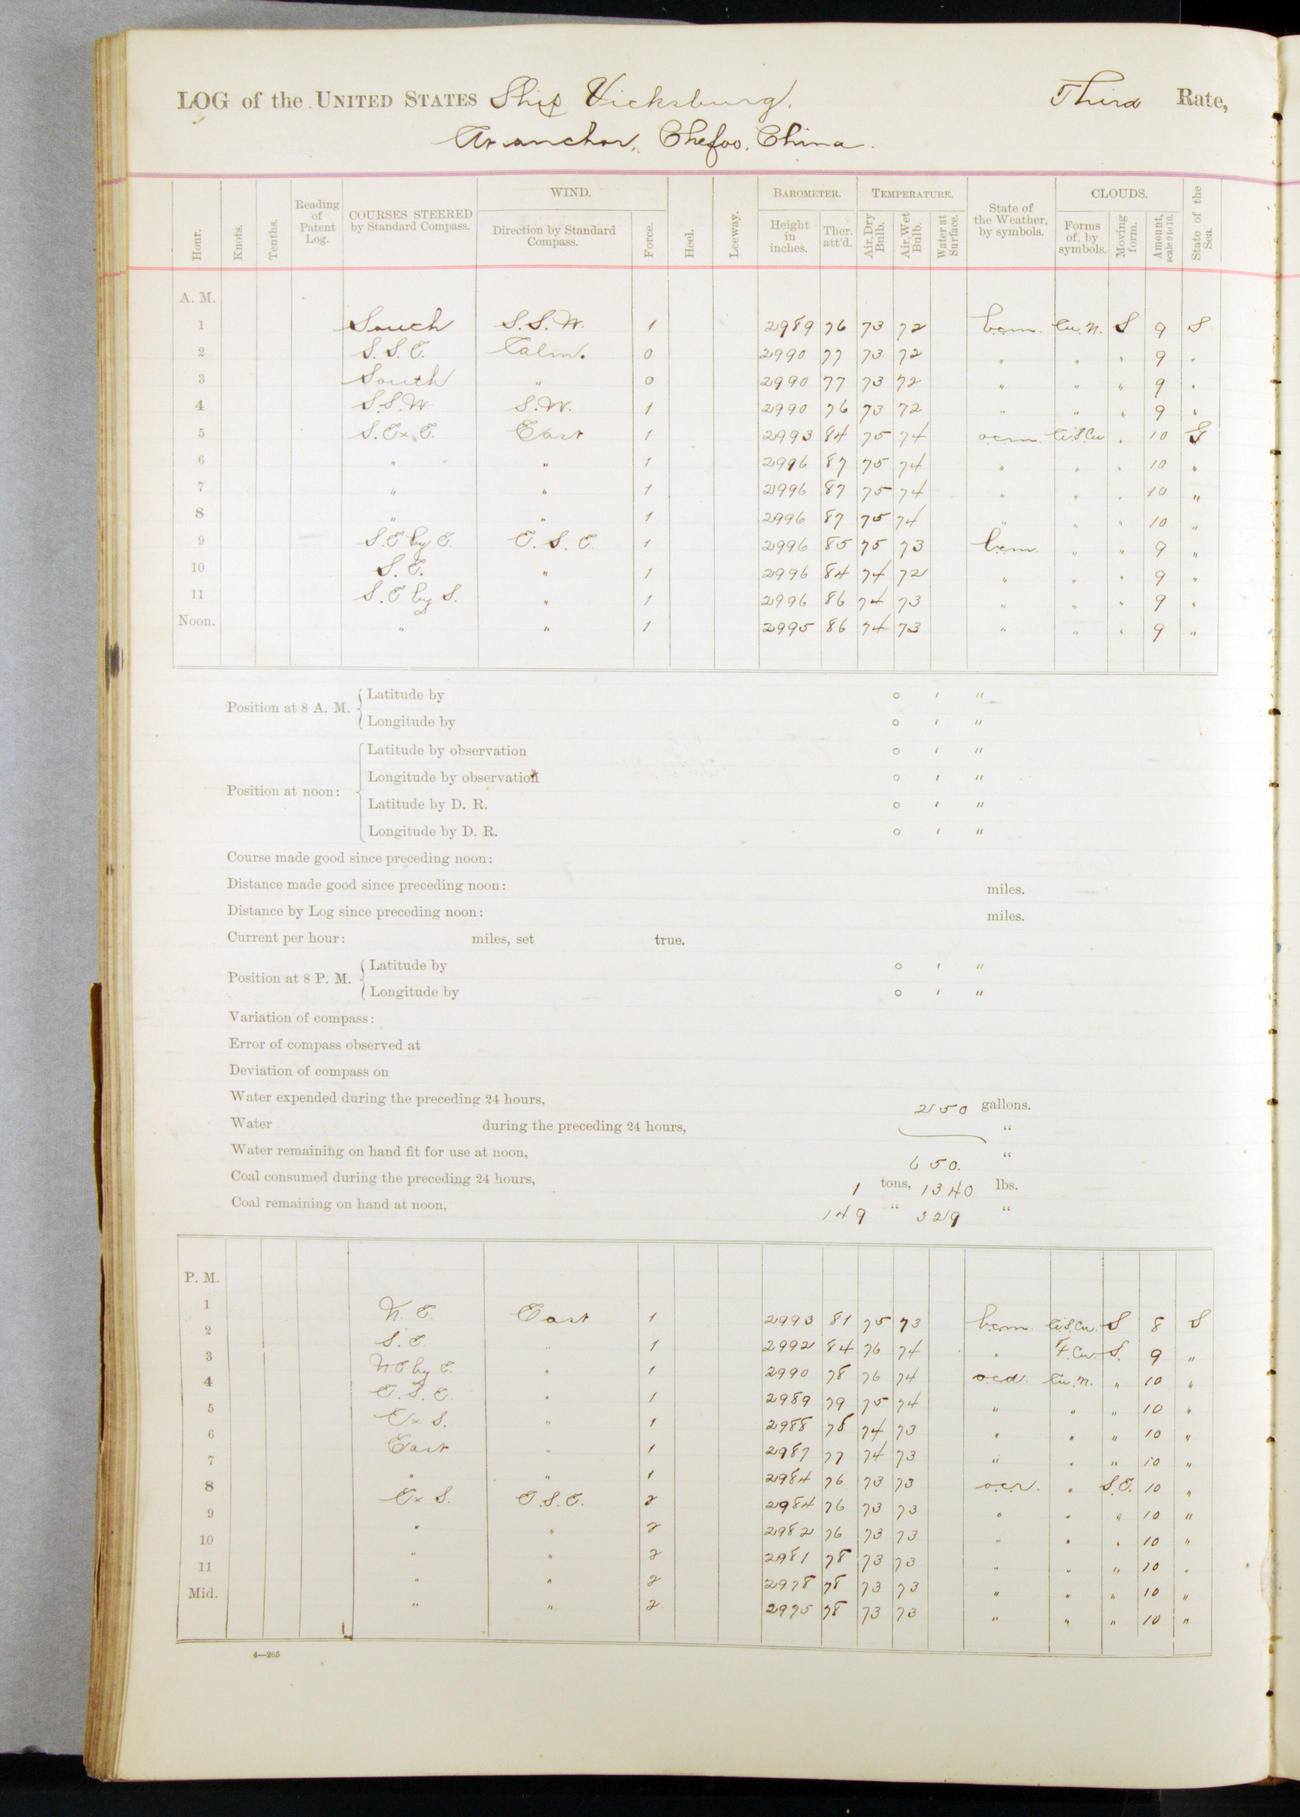 LOG of the UNITED STATES Ship Vicksburg. Third Rate,
At anchor, Chefoo, China.
Hour. Knots. Tenths. Reading of Patent Log. COURSES STEERED by Standard Compass. WIND. Direction by Standard Compass. Force. Heel. Leeway. BAROMETER. Height in inches. Ther. att'd. TEMPERATURE. Air, Dry Bulb. Air, Wet Bulb. Water at Surface. State of the Weather, by symbols. CLOUDS. Forms of, by symbols. Moving form. Amount, scale 0 to 10. State of the Sea.
A. M.
1 South S.S.W. 1 2989 76 73 72 bcm. Cu.N. S 9 S
2 S.S.E. Calm. 0 2990 77 73 72 " " " 9 "
3 South " 0 2990 77 73 72 " " " 9 "
4 S.S.W. S.W. 1 2990 76 73 72 " " " 9 "
5 S.ExE. East 1 2993 84 75 74 ocm. Ci.S.Cu " 10
6 " " 1 2996 87 75 74 " " " 10 "
7 " " 1 2996 87 75 74 " " " 10 "
8 " " 1 2996 87 75 74 " " " 10 "
9 S.E by E. E.S.E. 1 2996 85 75 73 bcm. " " 9 "
10 S.E. " 1 2996 84 74 72 " " " 9 "
11 S.E by S. " 1 2996 86 74 73 " " " 9 "
Noon. " " 1 2995 86 74 73 " " " 9 "
Position at 8 A. M. Latitude by ° ' "
Longitude by ° ' "
Position at noon: Latitude by observation ° ' "
Longitude by observation ° ' "
Latitude by D. R. ° ' "
Longitude by D. R. ° ' "
Course made good since preceding noon:
Distance made good since preceding noon: miles.
Distance by Log since preceding noon: miles.
Current per hour: miles, set true.
Position at 8 P. M. Latitude by ° ' "
Longitude by ° ' "
Variation of compass:
Error of compass observed at
Deviation of compass on
Water expended during the preceding 24 hours, 250 gallons.
Water during the preceding 24 hours, "
Water remaining on hand fit for use at noon, 650. "
Coal consumed during the preceding 24 hours, 1 tons, 1340 lbs.
Coal remaining on hand at noon, 149 " 329 "
P. M.
1 N.E. East 1 2993 81 75 73 bcm. Ci.S.Cu. S 8 S
2 S.E. " 1 2992 84 76 74 " F.Cu. S. 9 "
3 NE by E. " 1 2990 78 76 74 ocd. Cu.N. " 10 "
4 E.S.E. " 1 2989 79 75 74 " " " 10 "
5 ExS. " 1 2988 78 74 73 " " " 10 "
6 East " 1 2987 77 74 73 " " " 10 "
7 " " 1 2984 76 73 73 ocr. " S.E. 10 "
8 ExS. E.S.E. 2 2984 76 73 73 " " " 10 "
9 " " 2 2982 76 73 73 " " " 10 "
10 " " 2 2981 78 73 73 " " " 10 "
11 " " 2 2978 78 73 73 " " " 10 "
Mid. " " 2 2975 78 73 73 " " " 10 "
4—265